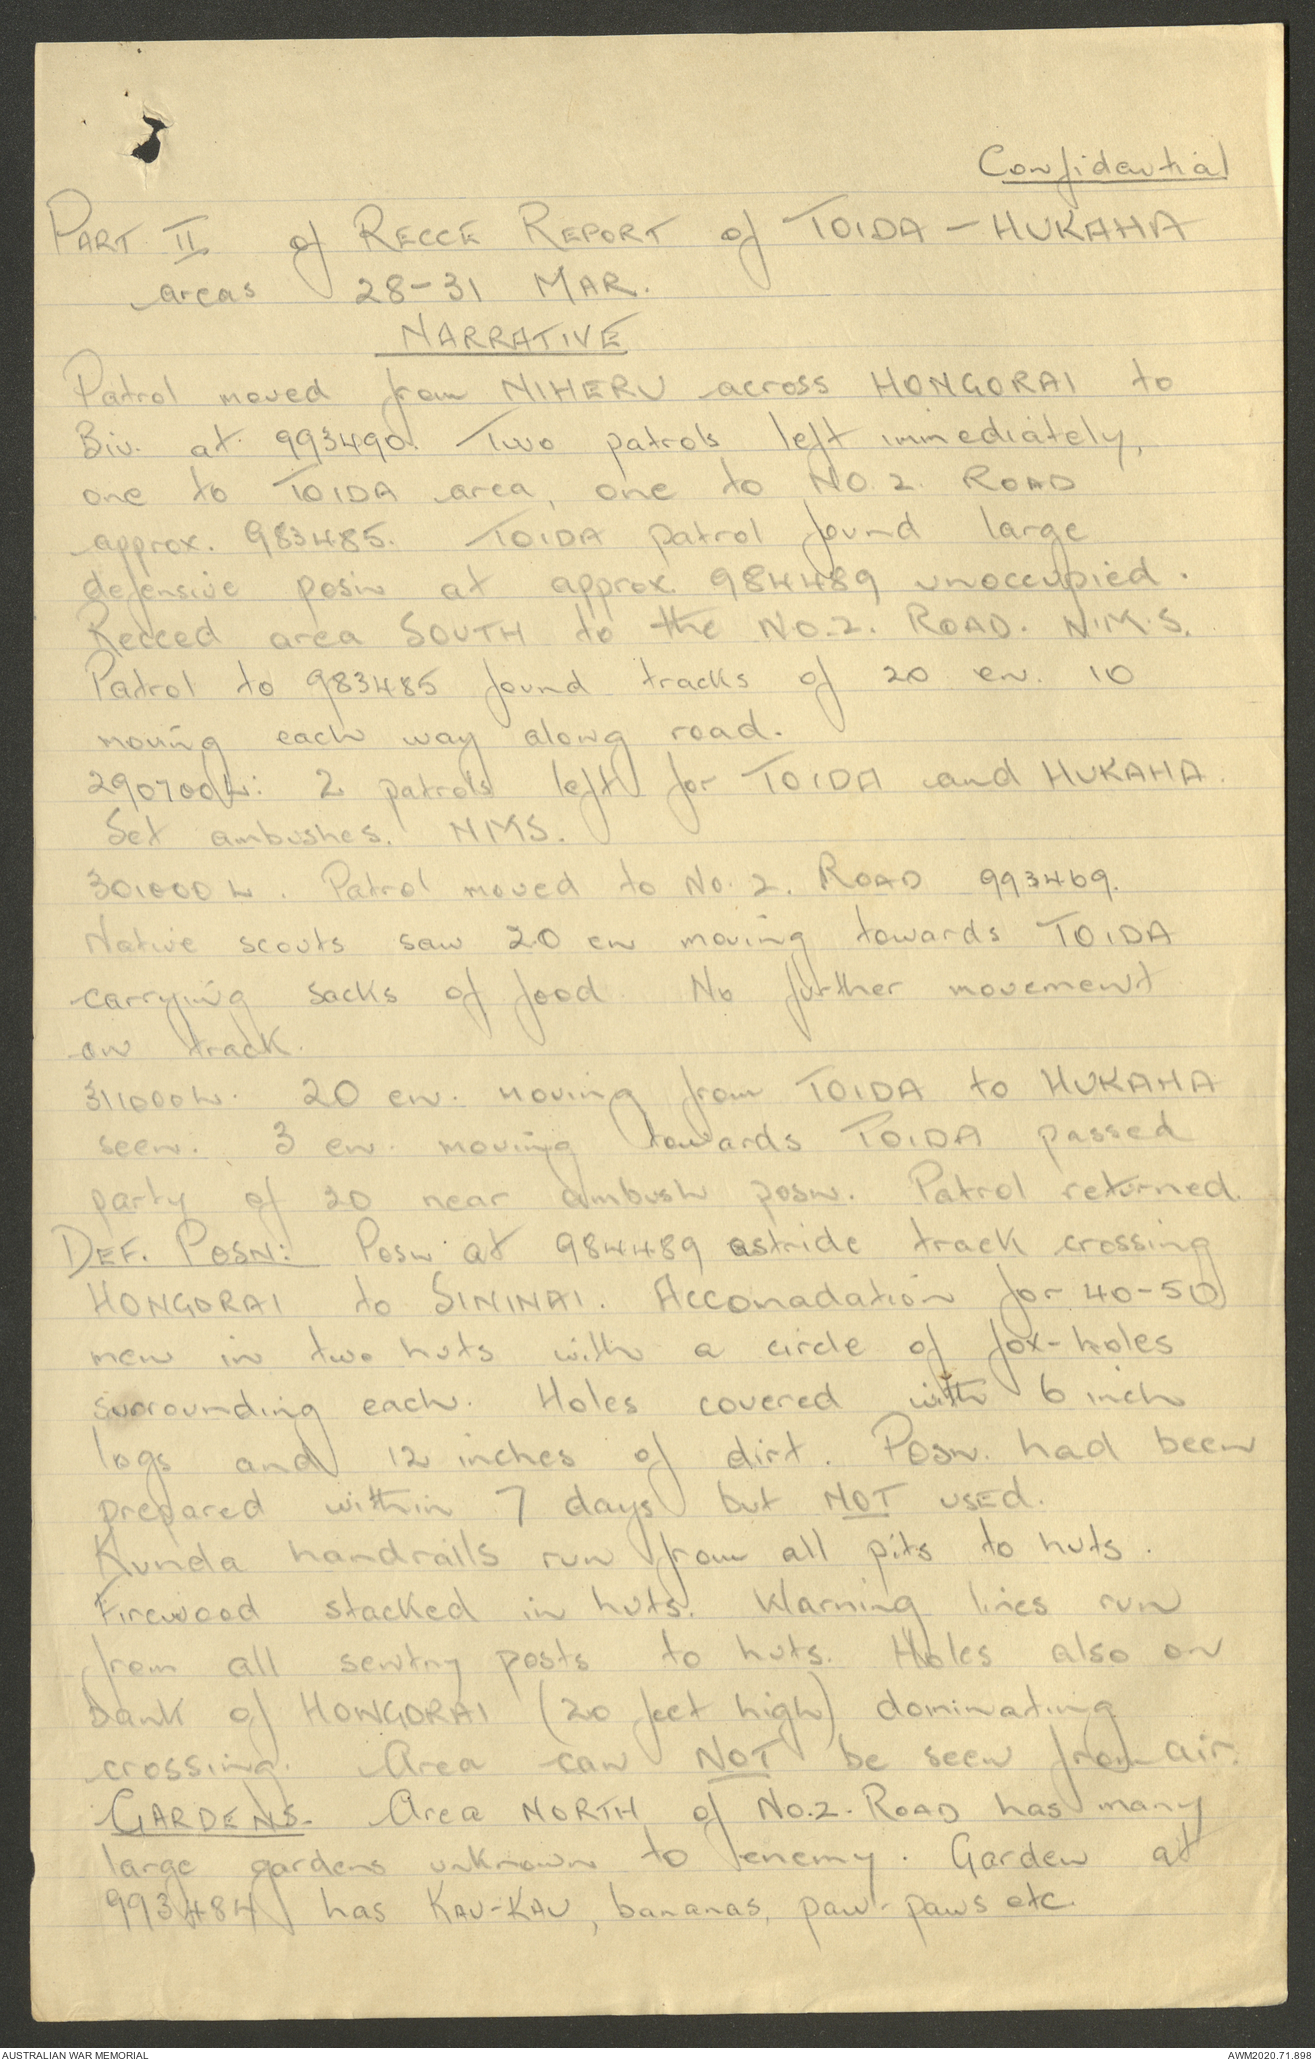 Confidential
PART II of RECCE REPORT of TOIDA - HUKAHA
areas 28-31 MAR.
NARRATIVE
Patrol moved from NIHERU across HONGORAI to
Biv. at 993490. Two patrols left immediately,
one to TOIDA area, one to NO.2. ROAD
approx. 983485. TOIDA patrol found large
defensive posin at approx. 984489 unoccupied.
Recced area SOUTH to the NO.2. ROAD. N.M.S.
Patrol to 983485 found tracks of 20 en. 10
moving each way along road.
290700L: 2 patrols left for TOIDA and HUKAHA.
Set ambushes. NMS.
301000L. Patrol moved to No. 2. ROAD 993469.
Native scouts saw 20 en moving towards TOIDA
carrying sacks of food. No further movement
on track.
311000L. 20 en. moving from TOIDA to HUKAHA
seen. 3 en. moving towards TOIDA passed
party of 20 near ambush posn. Patrol returned.
DEF. POSN: Posn at 984489 astride track crossing
HONGORAI to SININAI. Acconadation for 40-50
men in two huts with a circle of fox-holes
surrounding each. Holes covered with 6 inch
logs and 12 inches of dirt. Posn. had been
prepared within 7 days but NOT used.
Kunda handrails run from all pits to huts.
Firewood stacked in huts. Warning lines run
from all sentry posts to huts. Holes also on
bank of HONGORAI (20 feet high) dominating
crossing. Area can NOT be seen from air.
GARDENS. Area NORTH of No.2. ROAD has many
large gardens unknown to enemy. Garden at
993484 has KAU-KAU, bananas, paw-paws etc.
AUSTRALIAN WAR MEMORIAL
AWM2020.71.898